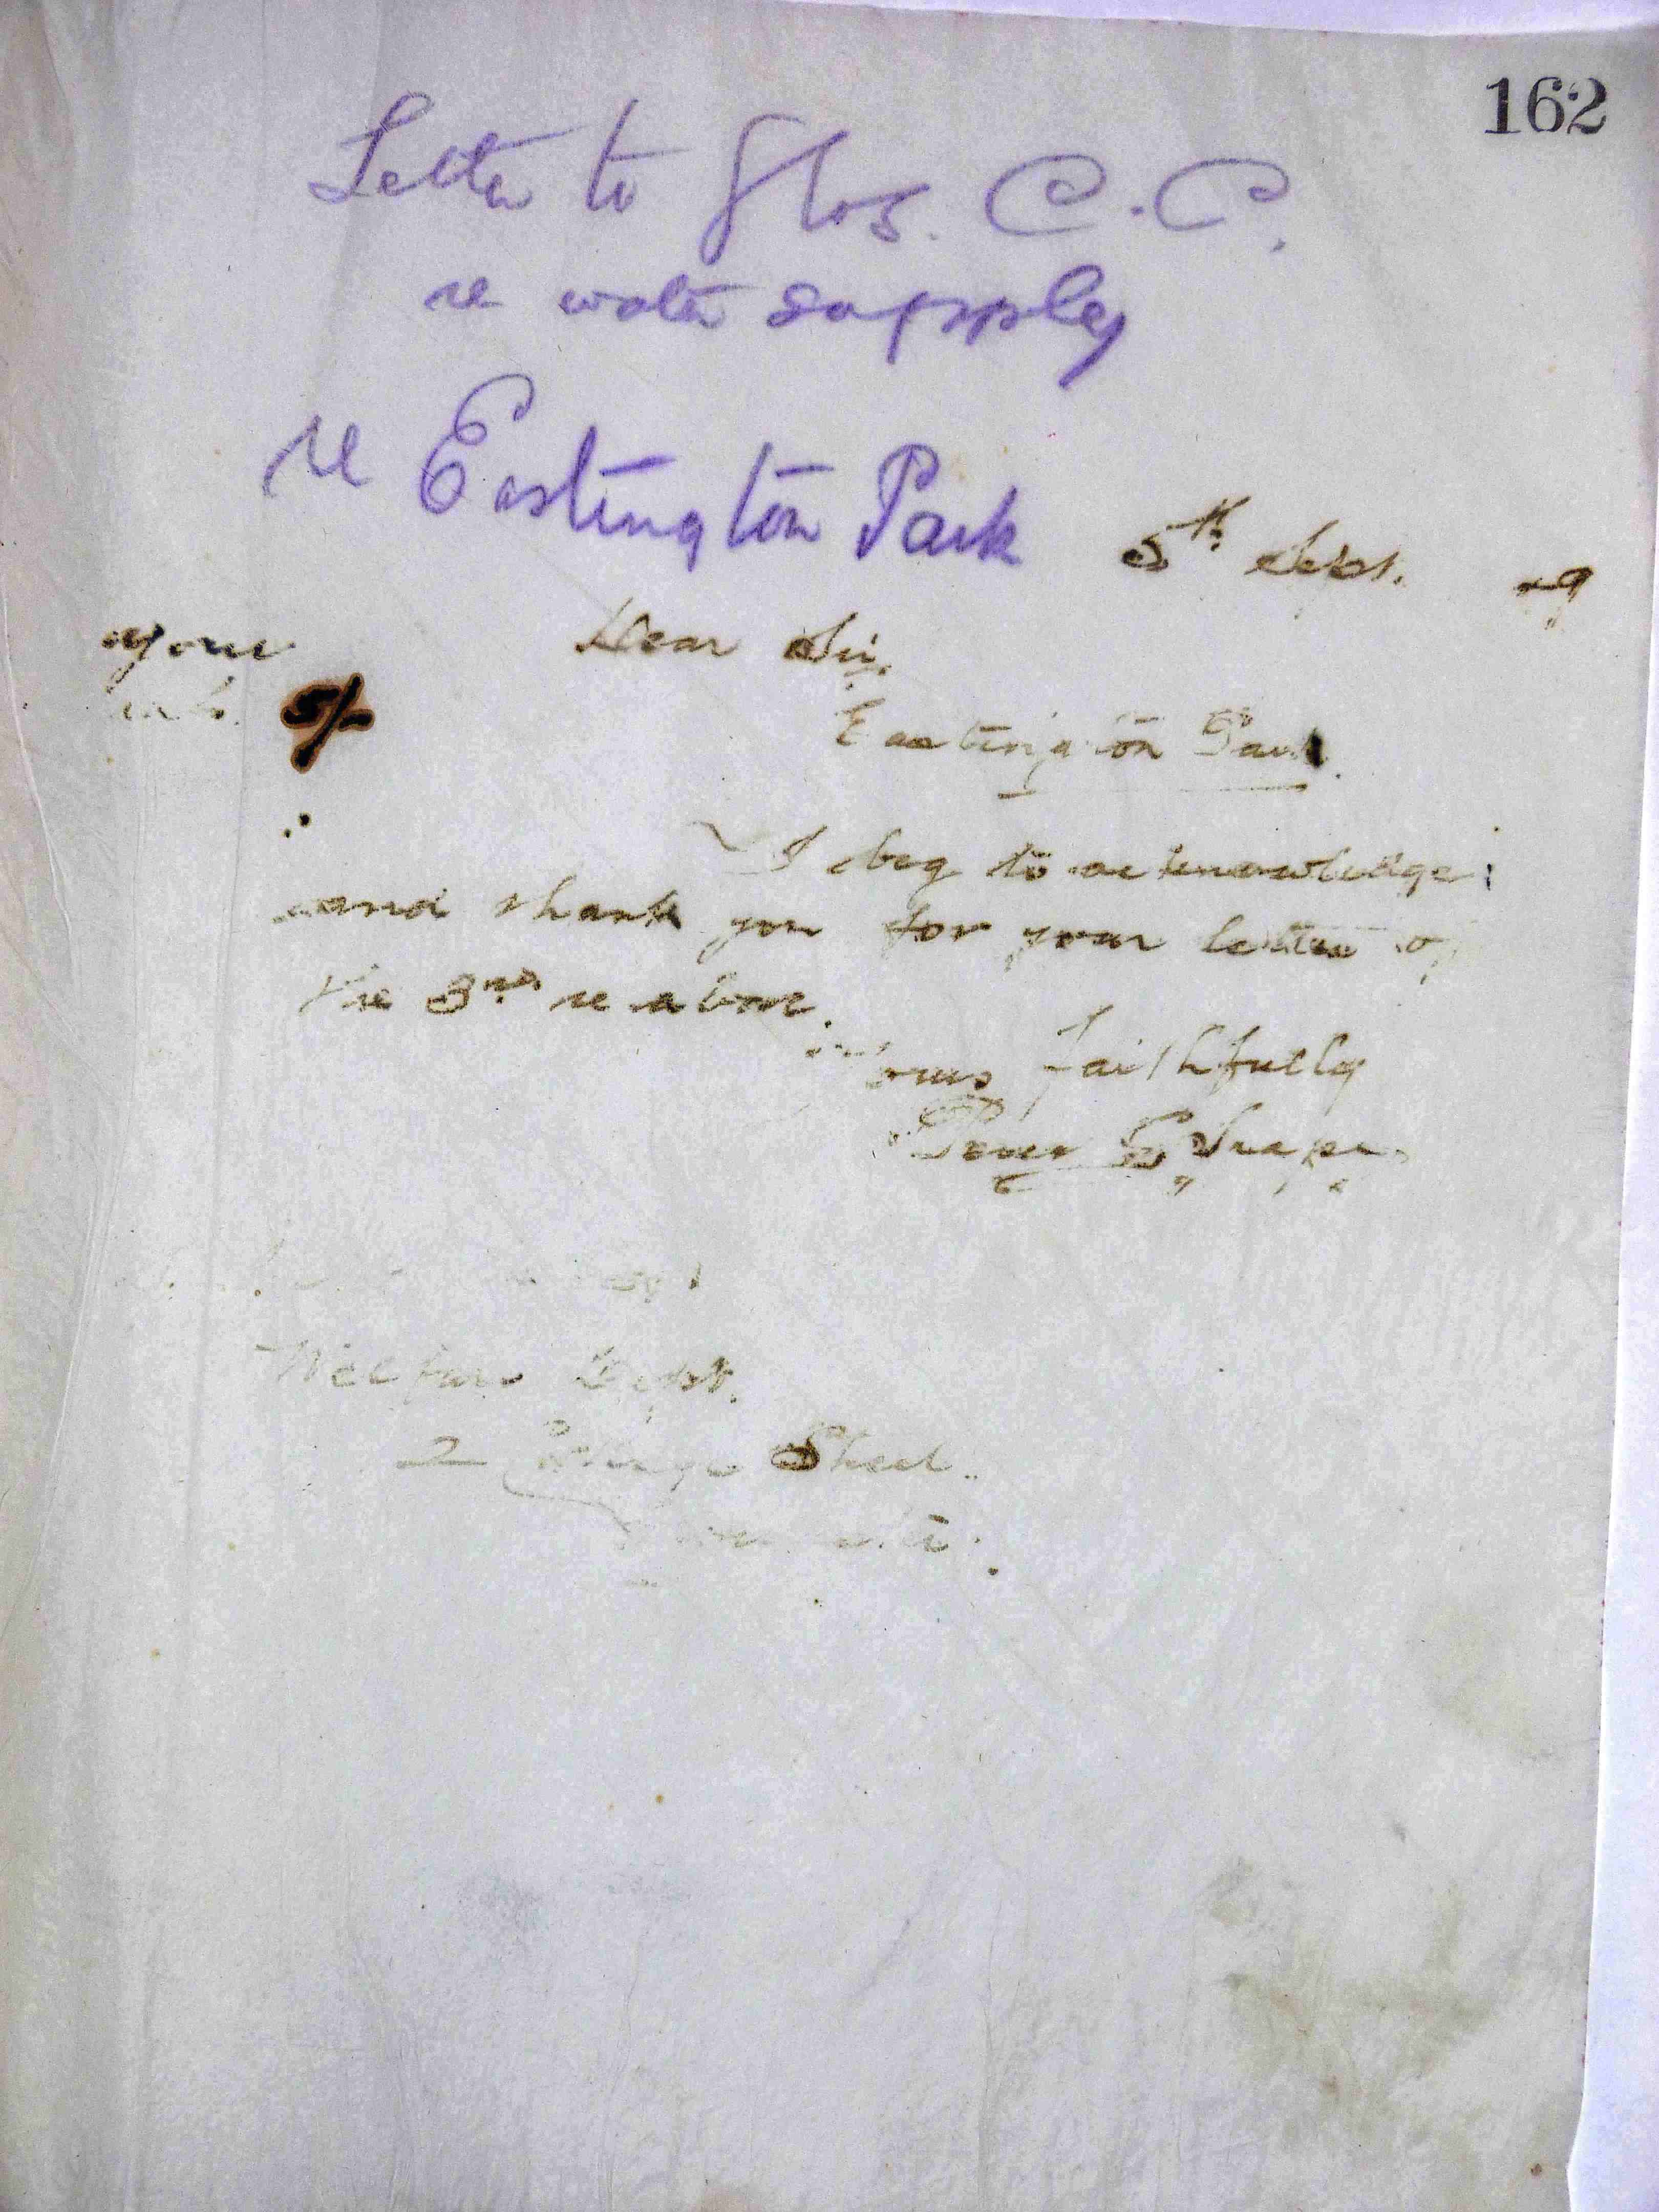 162
Letter to Glos. C.C.
re water supply
re Eastington Park
5th Sept.
Dear Sir.
Eastington Park.
I beg to acknowledge
and thank you for your letter of
the 3rd re above.
Yours faithfully
Welfare Dept.
2 College Street.